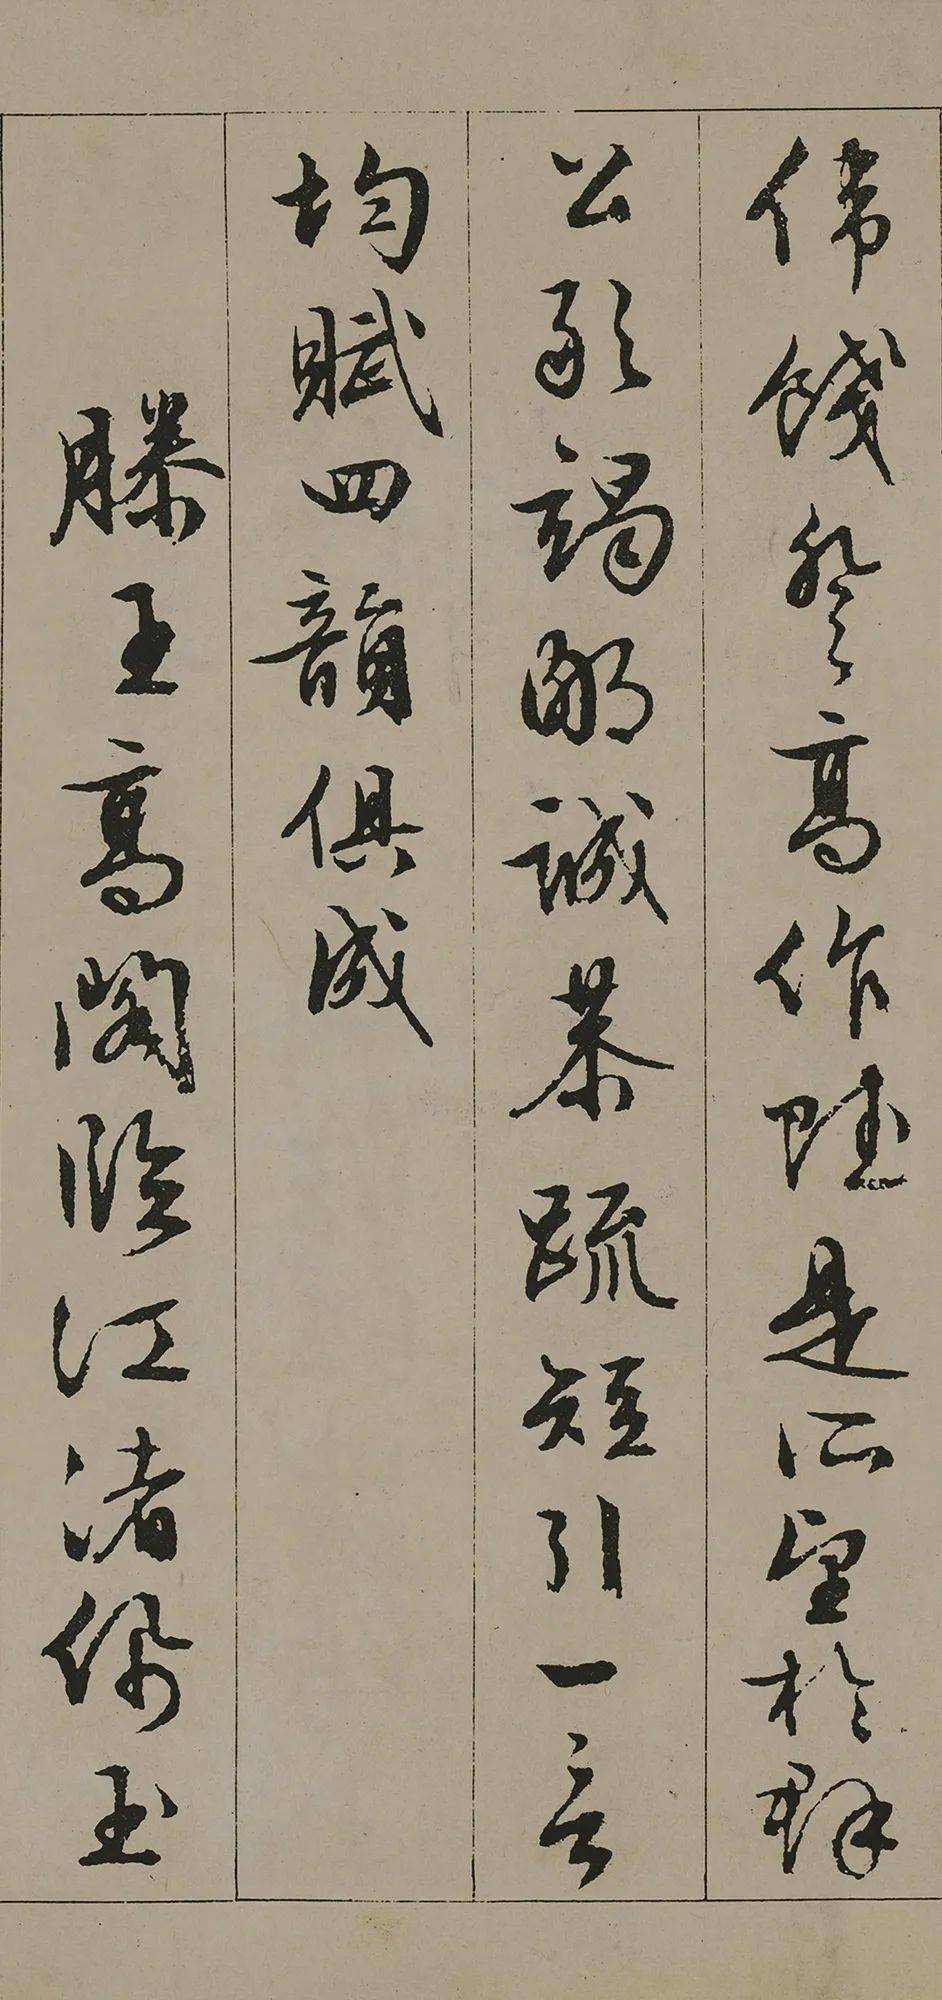 偉餞登高作賦是所望於群
公敢竭鄙誠恭疏短引一言
均賦四韻俱成
滕王高閣臨江渚佩玉